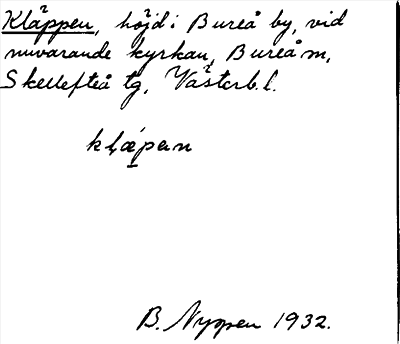 Kläppen, höjd i Bureå by, vid
nuvarande kyrkan, Bureå m,
Skellefteå tg, Västerb. l.
kļǽ̱pən
B. Nyppen 1932.